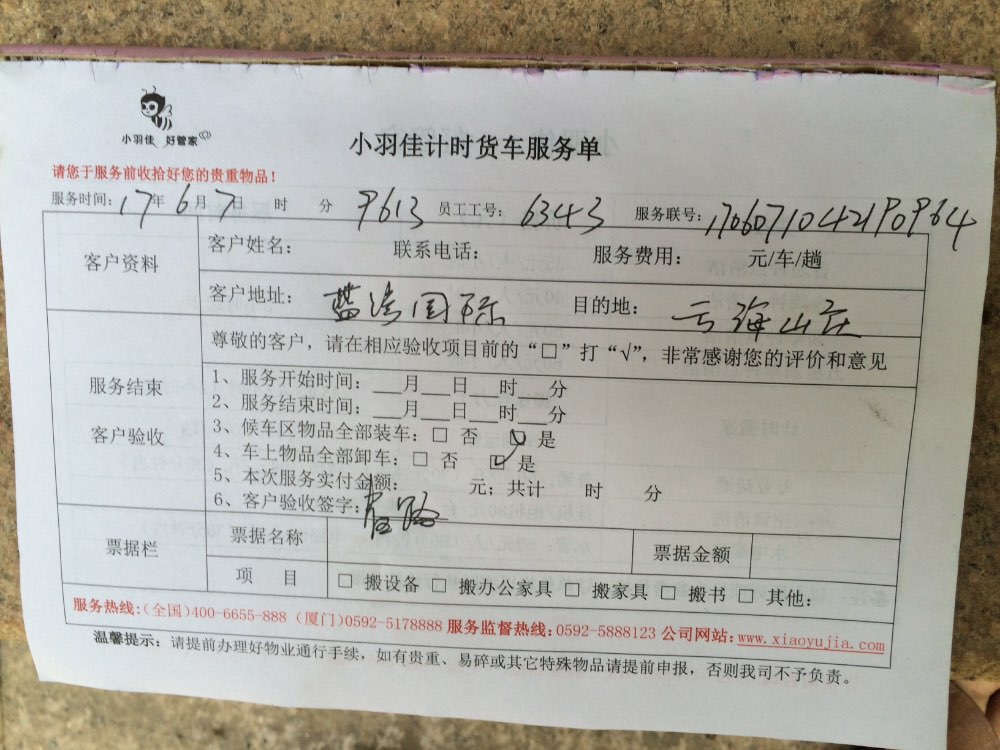 小羽佳 好管家
小羽佳计时货车服务单
请您于服务前收拾好您的贵重物品！
服务时间：17年6月7日 时 分 9613 员工工号：6343 服务联号：1706071042190964
客户资料
客户姓名： 联系电话： 服务费用： 元/车/趟
客户地址：蓝湾国际 目的地：云海山庄
服务结束
客户验收
尊敬的客户，请在相应验收项目前的“□”打“√”，非常感谢您的评价和意见
1、服务开始时间：__月__日__时__分
2、服务结束时间：__月__日__时__分
3、候车区物品全部装车：□ 否 ☑ 是
4、车上物品全部卸车：□ 否 ☑ 是
5、本次服务实付金额： 元；共计 时 分
6、客户验收签字：
票据栏
票据名称 票据金额
项 目 □ 搬设备 □ 搬办公家具 □ 搬家具 □ 搬书 □ 其他：
服务热线：（全国）400-6655-888（厦门）0592-5178888 服务监督热线：0592-5888123 公司网站：www.xiaoyujia.com
温馨提示：请提前办理好物业通行手续，如有贵重、易碎或其它特殊物品请提前申报，否则我司不予负责。